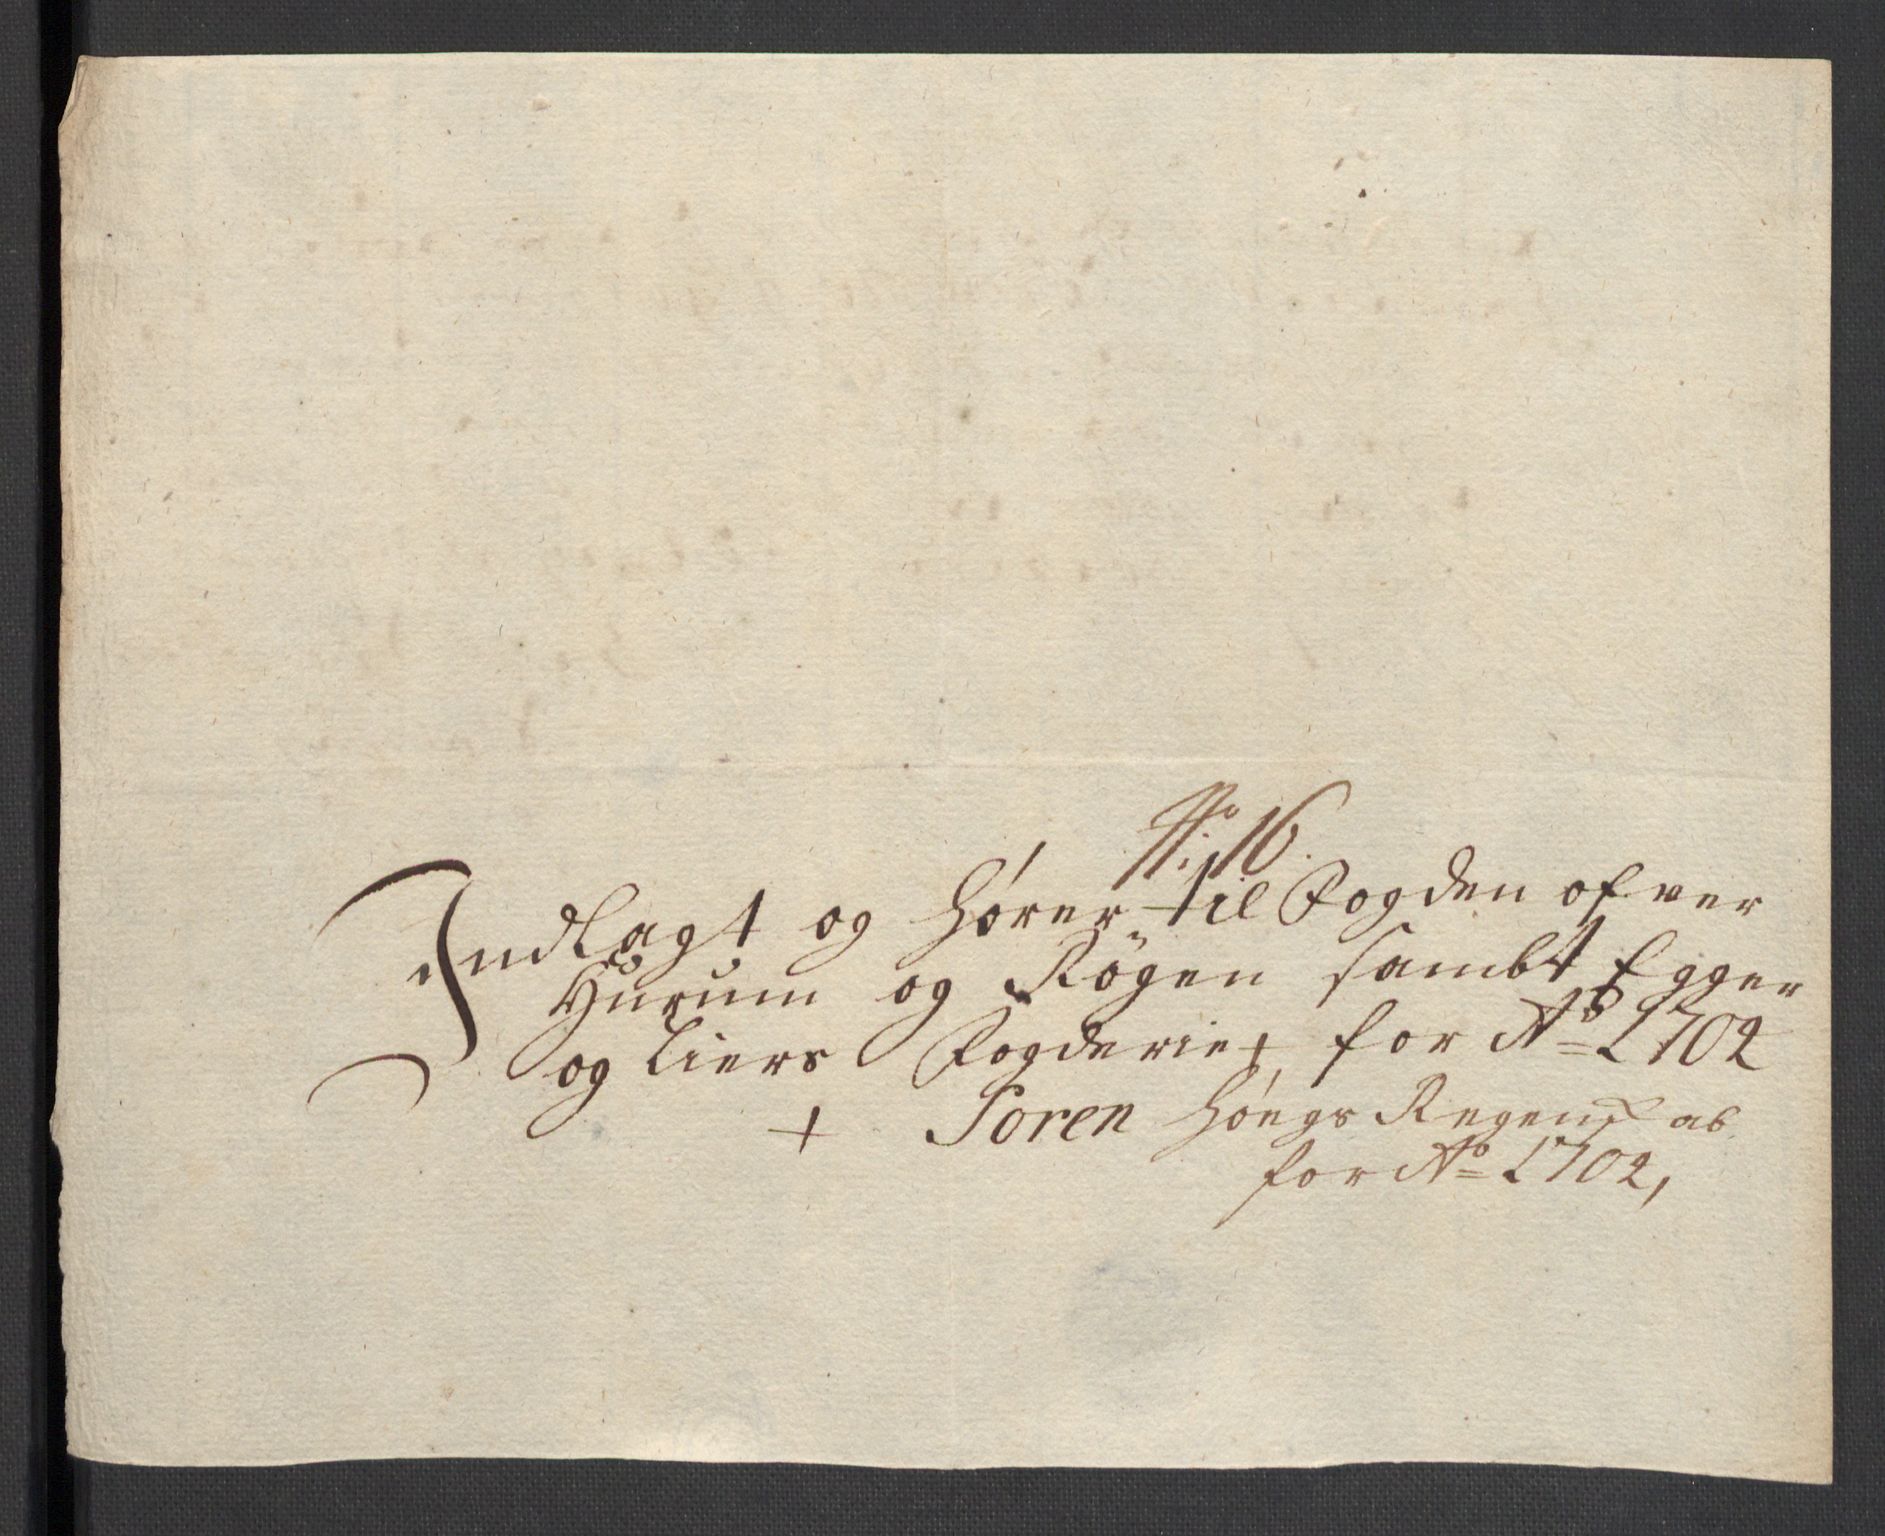 No: 16.
Indlagt og hører til Fogden ofver
Hurum og Røgen sambt Egger
og Liers Fogderie + for Ao 1702
+ Soren Høegs Regenskab
for Ao 1702,